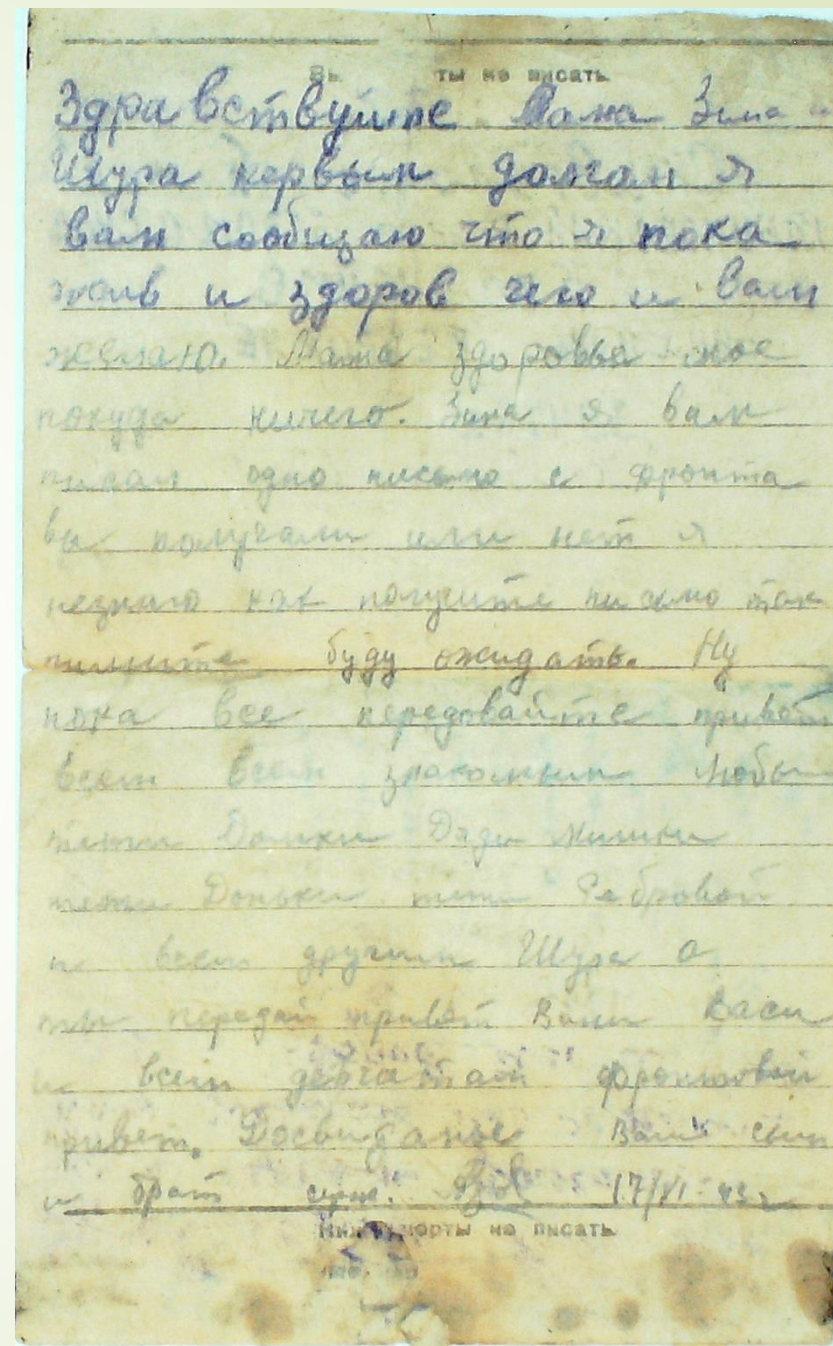 ты не писать
Здравствуйте Мама Зина и
Шура первым долгам я
вам сообщаю что я пока
жив и здоров чего и вам
желаю. Мама здоровье мое
покуда ничего. Зина я вам
писал одно письмо с фронта
вы получали или нет я
незнаю как получите письмо так
пишите буду ожидать. Ну
пока все передавайте привет
всем всем знакомым Любы
тети Домки Дяди Мишки
тети Доньки тети Ребровой
и всем другим Шура а
ты передай привет Вани Васи
и всем девчатам фронтовой
привет. Досвиданье Ваш сын
и брат 17/VI-43г
Ниже черты не писать